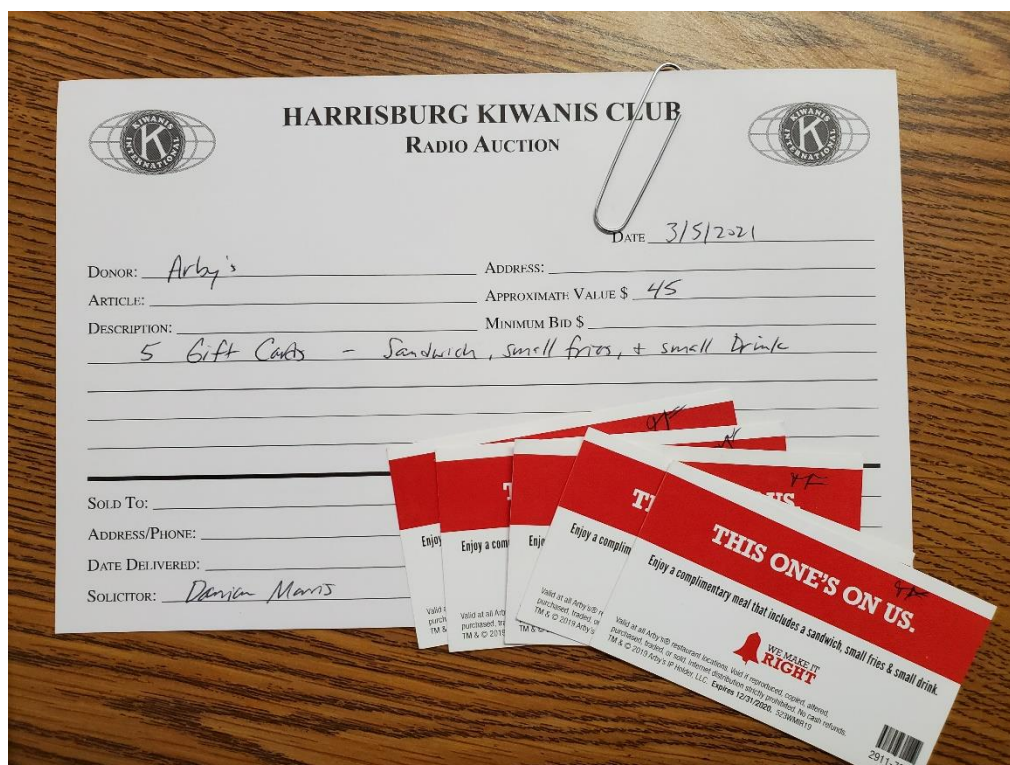 HARRISBURG KIWANIS CLUB
RADIO AUCTION
KIWANIS
K
INTERNATIONAL
KIWANIS
K
INTERNATIONAL
DATE 3/5/2021
DONOR: Arby's
ADDRESS:
ARTICLE:
APPROXIMATE VALUE $ 45
DESCRIPTION:
MINIMUM BID $
5 Gift Cards - Sandwich, small fries, + small Drink
SOLD TO:
ADDRESS/PHONE:
DATE DELIVERED:
SOLICITOR: Damian Morris
Enjoy
Enjoy a com
Enjo
Enjoy a complim
THIS ONE'S ON US.
Enjoy a complimentary meal that includes a sandwich, small fries & small drink.
WE MAKE IT
RIGHT
Valid at all Arby's® restaurant locations. Void if reproduced, copied, altered,
purchased, traded, or sold. Internet distribution strictly prohibited. No cash refunds.
TM & © 2019 Arby's IP Holder, LLC. Expires 12/31/2020. 523WMIR19